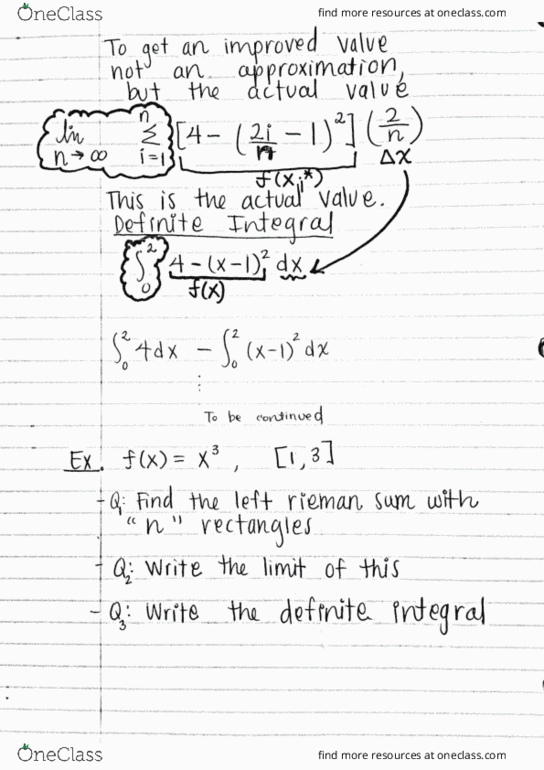 OneClass find more resources at oneclass.com
To get an improved value
not an approximation,
but the actual value
lim n→∞ n Σ i=1 [4 - (2i/n - 1)²] (2/n)
f(xᵢ*) Δx
This is the actual value.
Definite Integral
∫₀² 4 - (x-1)² dx
f(x)
∫₀² 4dx - ∫₀² (x-1)² dx
⋮
To be continued
Ex. f(x) = x³, [1,3]
- Q₁: Find the left rieman sum with
"n" rectangles
- Q₂: Write the limit of this
- Q₃: Write the definite integral
OneClass find more resources at oneclass.com